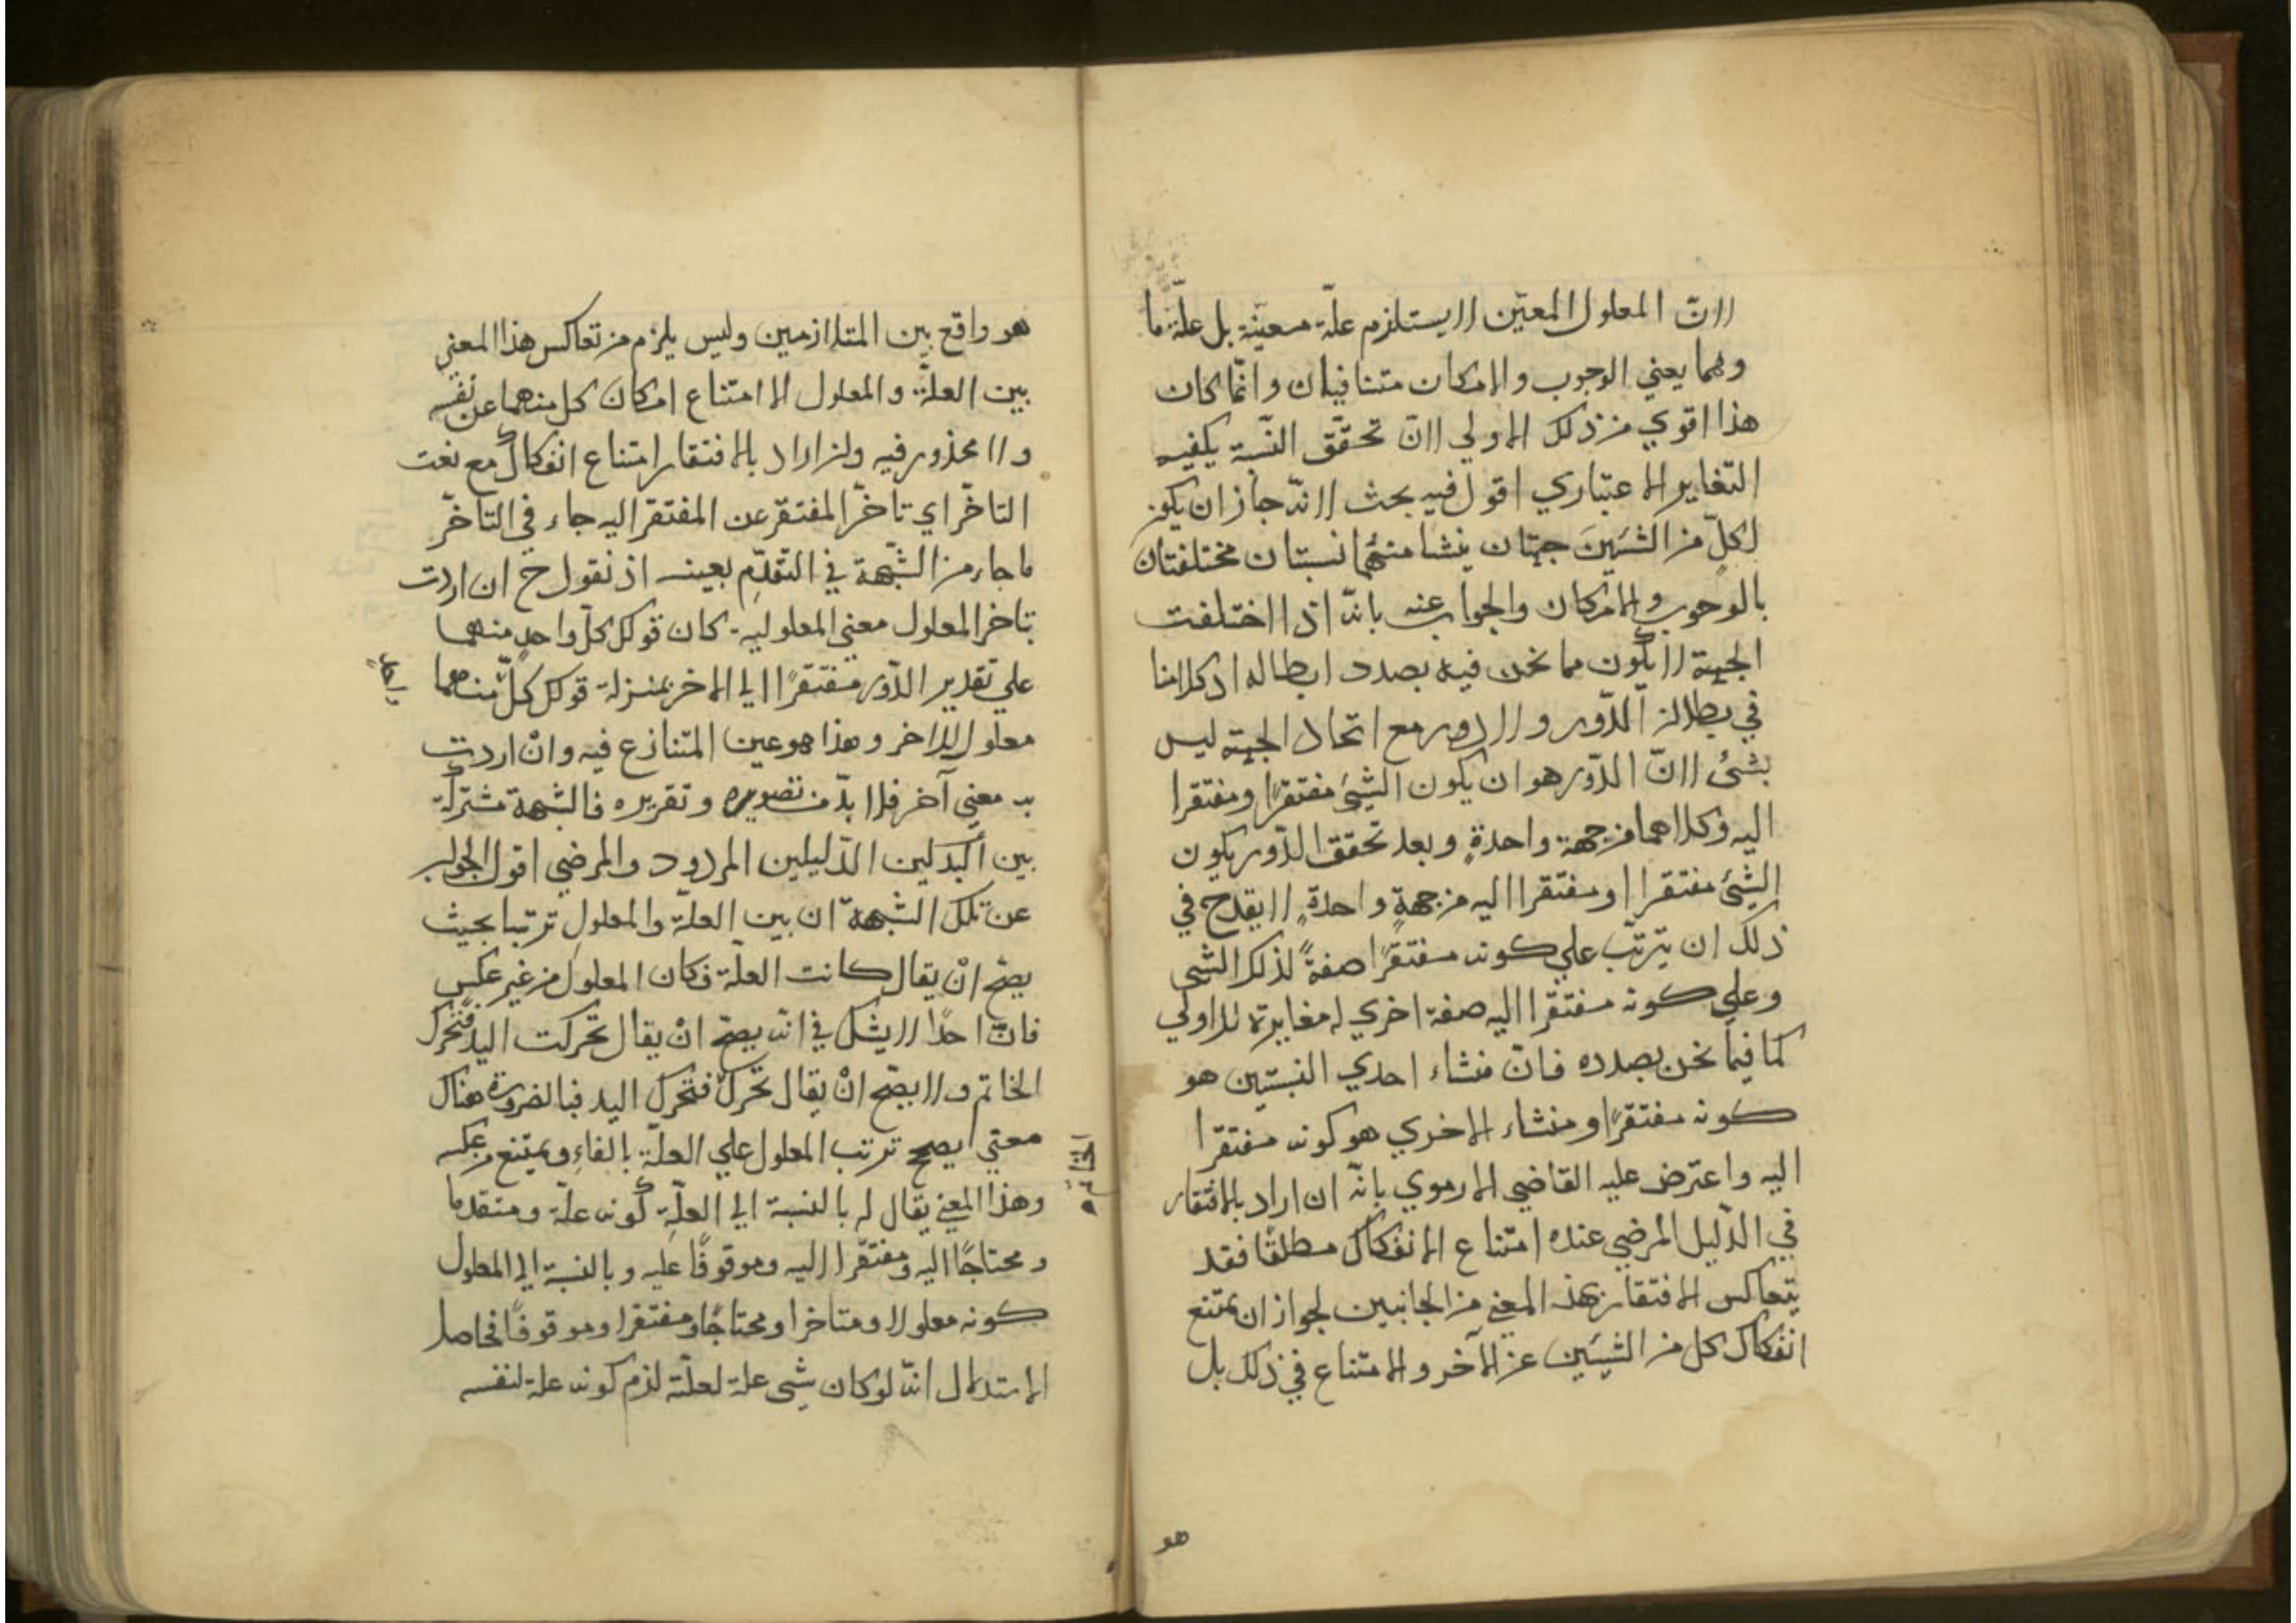 لانّ المعلول المعيّن لا يستلزم علّة معينة بل علّة ما
وهما يعني الوجوب والامكان متنافيان وانّما كان
هذا اقوي من ذلك الاولي لانّ تحقّق النّسبة يكفيه
التّغاير الاعتباري اقول فيه بحث لانّه جاز ان يكون
لكلّ من الشيئين جهتان ينشا منهما نسبتان مختلفتان
بالوجوب والامكان والجواب عنه بانّه اذا اختلفت
الجهة لا يكون مما نحن فيه بصدد ابطاله اذ كلامنا
في بطلان الدّور ولا دور مع اتحاد الجهة ليس
بشئ لانّ الدّور هو ان يكون الشيئ مفتقرًا ومفتقرا
اليه وكلاهما من جهة واحدةٍ وبعد تحقق الدّور بكون
الشيئ مفتقرا ومفتقرا اليه من جهةٍ واحدةٍ لا يقدح في
ذلك ان يترتّب علي كونه مفتقرًا صفةً لذلك الشئ
وعلي كونه مفتقرا اليه صفة اخري له مغايرة للاولي
كما فيما نحن بصدده فانّ منشاء احدي النسبتين هو
كونه مفتقرًا ومنشاء الاخري هو كونه مفتقرا
اليه واعترض عليه القاضي الارموي بانّه ان اراد بالافتقار
في الدّليل المرضي عنده امتناع الانفكاك مطلقًا فقد
يتعاكس الافتقار بهذ المعني من الجانبين لجواز ان يمتنع
انفكاك كل من الشيئين عن الآخر والامتناع في ذلك بل
هو
هو واقع بين المتلازمين وليس يلزم من تعاكس هذا المعني
بين العلّة والمعلول الا امتناع امكان كل منهما عن نفسه
ولا محذور فيه وان اراد بالافتقار امتناع انفكاك مع نعت
التاخّر اي تاخّر المفتقر عن المفتقر اليه جاء في التاخّر
ما جاء من الشّبهة في التقدّم بعينه اذ نقول ح ان اردت
بتاخر المعلول معني المعلولية كان قولك كلّ واحدٍ منهما
علي تقدير الدّور مفتقرًا الي الاخر بمنزلة قولك كلّ منهما
معلول للاخر وهذا هو عين المتنازع فيه وانْ اردت
به معني آخر فلا بدّ من تصويره وتقريره فالشبهة مشتركة
بين الدّليلين المردود والمرضي اقول الجواب
عن تلك الشّبهة ان بين العلّة والمعلول ترتبا بحيث
يصحّ انْ يقال كانت العلّة فكان المعلول من غير عكس
فانّ احدًا لا يشك في انّه يصحّ انْ يقال تحركت اليد فتحرّك
الخاتم ولا يصّح انْ يقال تحرّك فتحرك اليد فبالضرورة هناك
الخاتم
معني يصحح ترتب المعلول علي العلّة بالفاء ويمتنع من عكسه
وهذا المعني يقال له بالنسبة الي العلّة كونه علّة ومتقدما
ومحتاجًا اليه ومفتقرا اليه وموقوفًا عليه وبالنسبة الي المعلول
كونه معلولا ومتاخرا ومحتاجًا ومفتقرا وموقوفًا فحاصل
الاستدلال انّه لو كان شئ علة لعلّته لزم كونه علة لنفسه